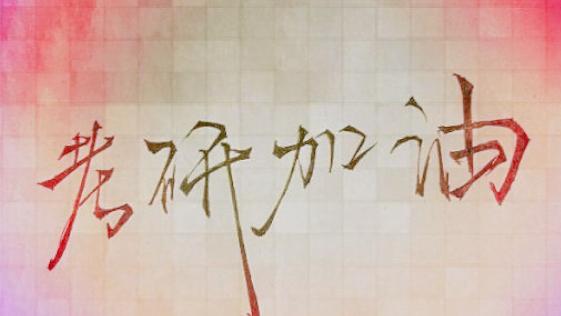 考研加油